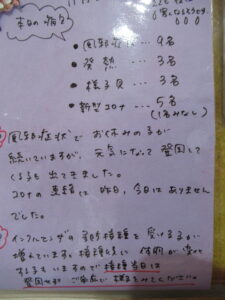 本日の病欠
• 風邪症状 … 9名
• 発熱 … 3名
• 様子見 … 3名
• 新型コロナ … 5名
(1名みなし)
風邪症状で お休みの方が
続いていますが、元気になって 登園して
くる子も 出てきました。
コロナの 連絡は 昨日、今日は ありません
でした。
インフルエンザの 予防接種を 受ける方が
増えています。接種後に 体調が 変わっ
てする子もいますので 接種当日は
登園せず ご家庭で 様子をみてください。